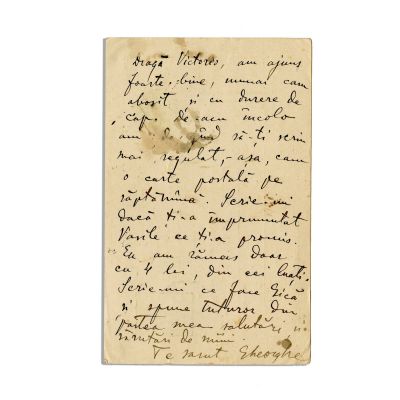 Dragă Victores, am ajuns
foarte bine, numai cam
obosit și cu durere de
cap. de-acu încolo
am de gând să-ți scriu
mai regulat, - așa, cam
o carte poștală pe
săptămână. Scrie-mi
dacă ti-a împrumutat
Vasile ce ti-a promis.
Eu, am rămas doar
cu 4 lei, din cei luați.
Scrie-mi ce face Gică
și spune tuturor din
partea mea salutări și
sărutări de mâini.
Te sarut Gheorghe